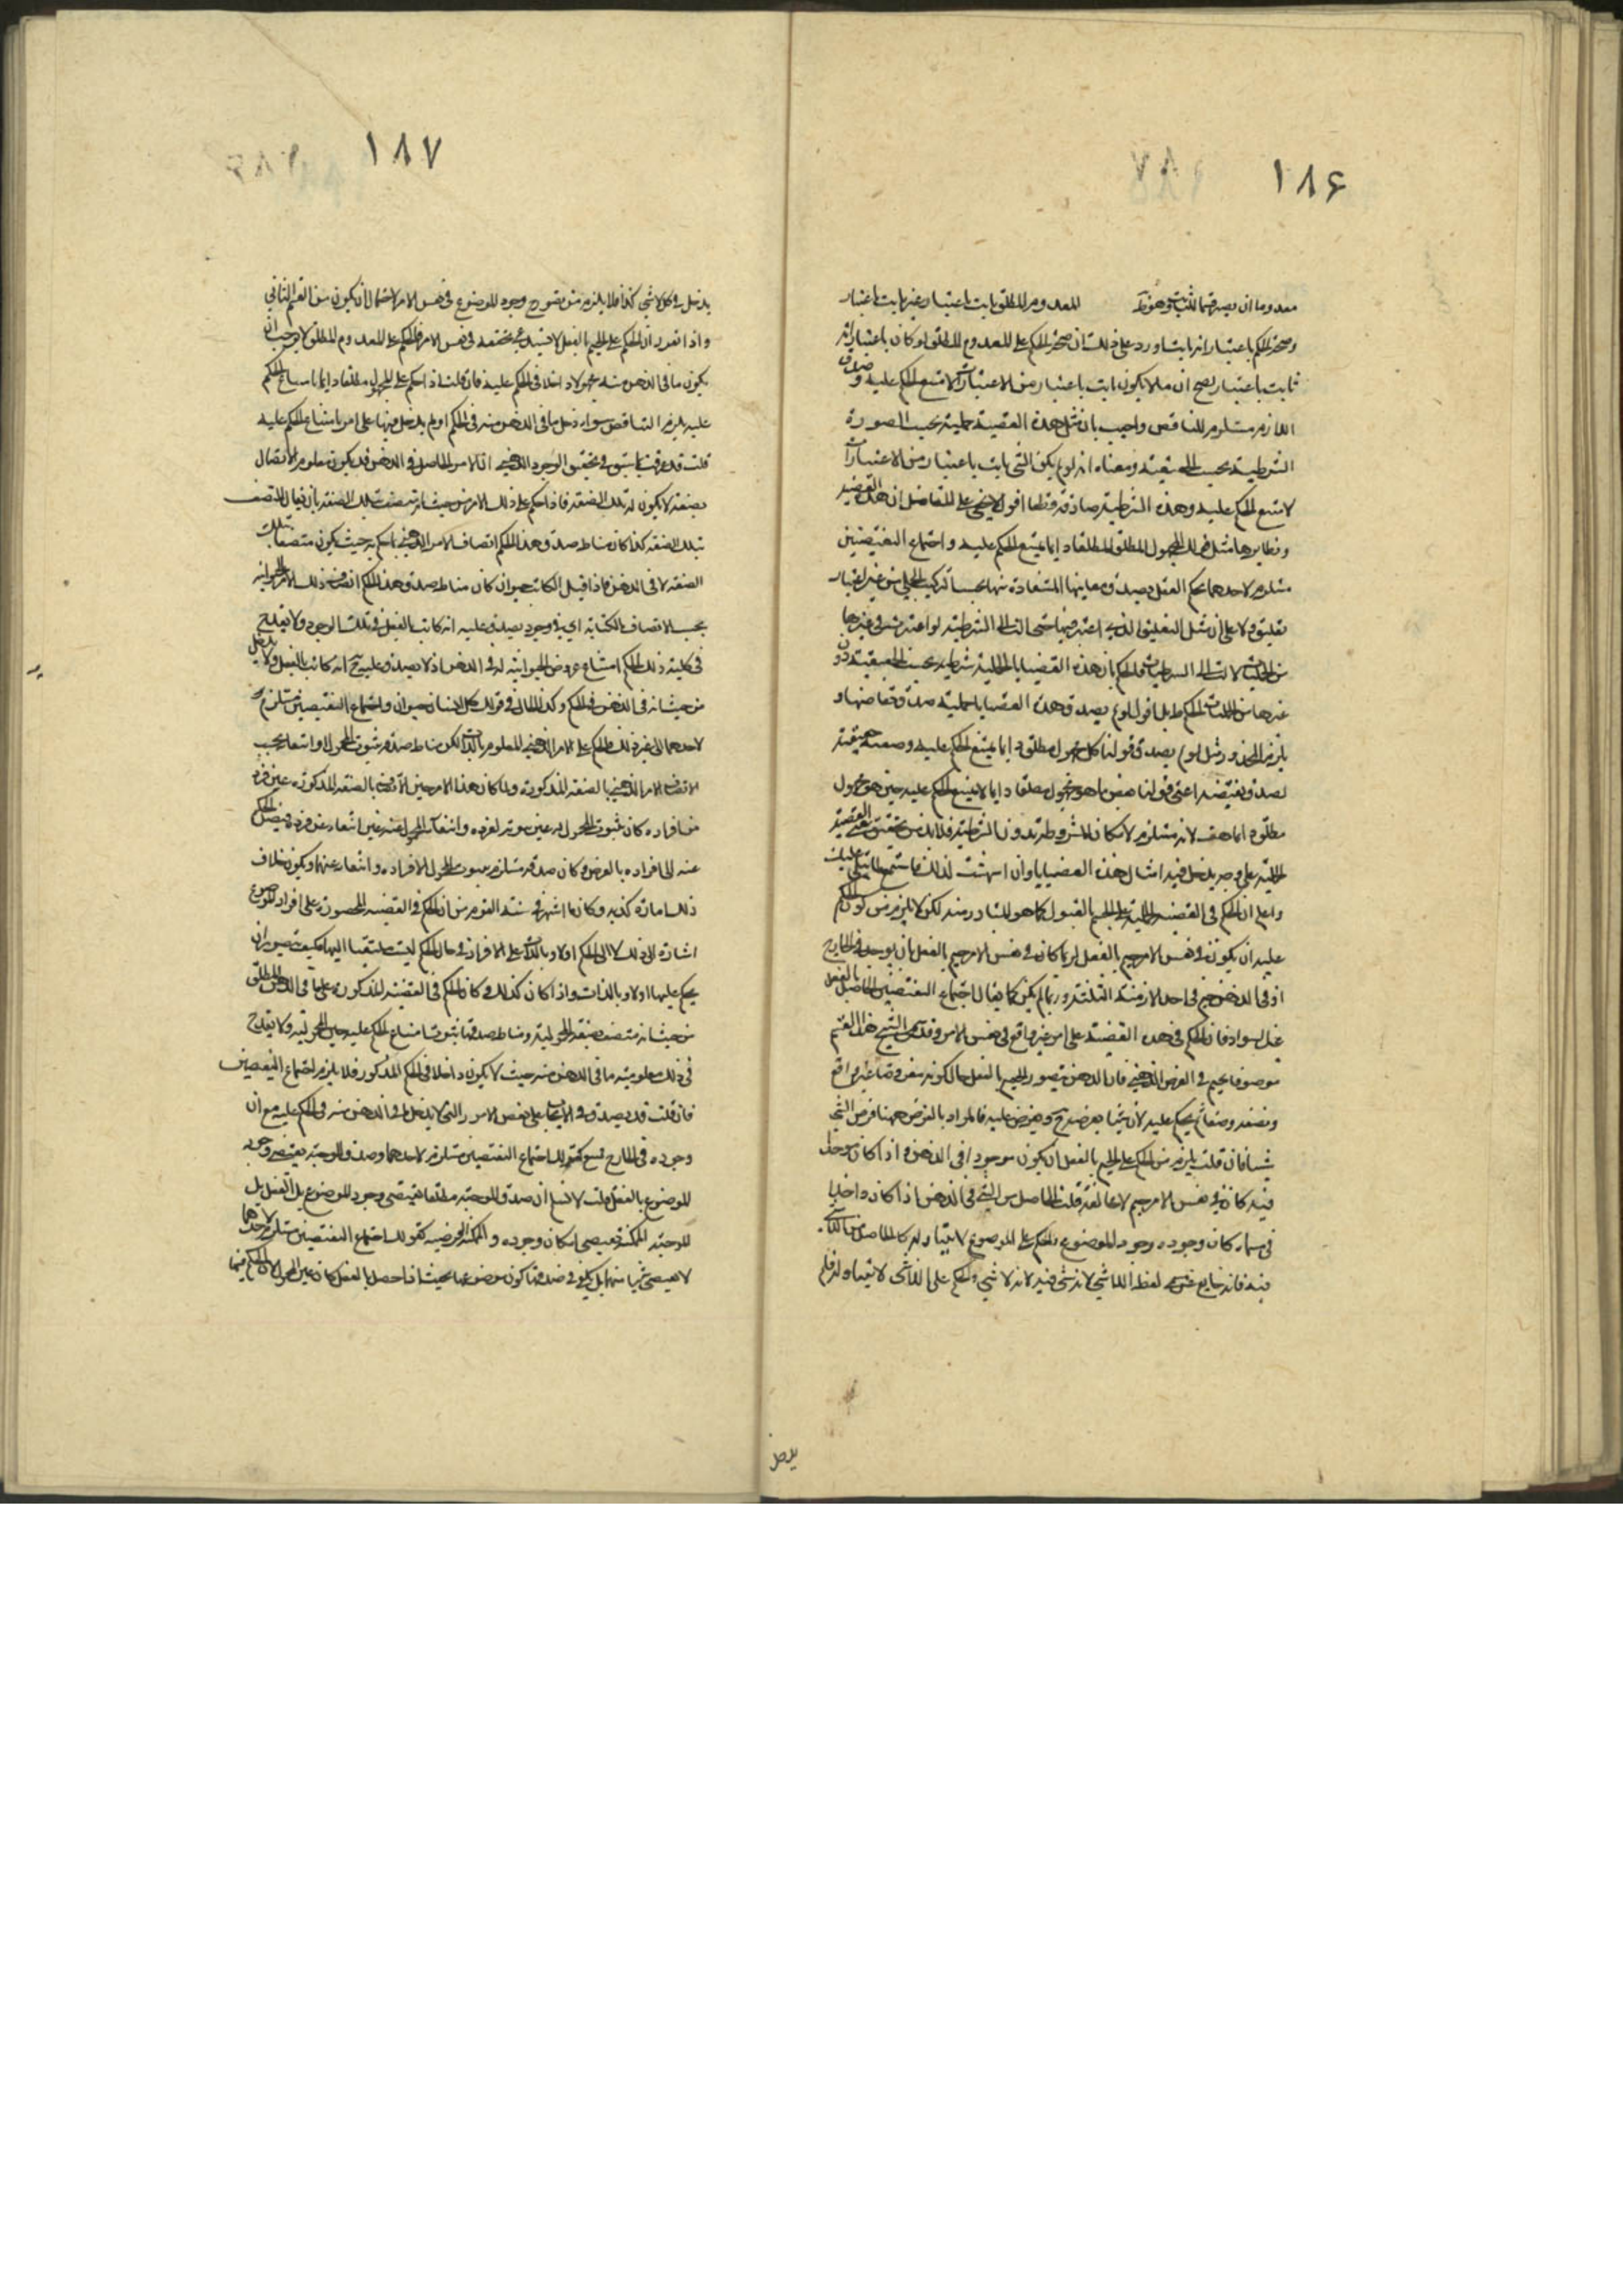 ١٨۶
معدوما ان يصدقهما للمعدوم المطلق ثابت باعتبار غير ثابت باعتبار
وصحة الحكم باعتبار انه ثابت اورد على ذلك ان صحة الحكم على المعدوم المطلق لو كان باعتبار انه
ثابت باعتبار يصح ان ما لا يكون ثابت باعتبار من الاعتبارات لا متنع الحكم عليه وصدق
اللازم مستلزم للتناقض واجيب بان مثل هذه القضية حملية بحسب الصورة
الشرطية بحسب الحقيقة ومعناه انه لو لم يكن الشئ ثابت باعتبار من الاعتبارات
لامتنع الحكم عليه وهذه الشرطية صادقة قطعا اقول لا يخفى على المتفاضل ان هذه القضية
ونظايرها مثل قولك المجهول المطلق مطلقا دايما يمتنع الحكم عليه واجتماع النقيضين
مستلزم لاحدهما يحكم العقل بصدق معانيها المستفادة منها بحسب التركيب الحملي من غير اعتبار
تعليق ولا على ان مثل التعليق الذي اعتبر فيها حتى الت الى الشرطية لو اعتبر في غيرها
من الحمليات لالت الى الشرطيات فالحكم بان هذه القضايا الحملية شرطية بحسب الحقيقة دون
غيرها من الحمليات تحكم بل اقول لو لم يصدق هذه القضايا حملية صدق نقايضها و
يلزم المحذور مثل لو لم يصدق قولنا كل مجهول مطلق دايما يمتنع الحكم عليه وصفية حقيقية
لصدق نقيضه اعني قولنا بعض ما هو مجهول مطلقا دايما لا يمتنع الحكم عليه حين هو مجهول
مطلق دايما هف لانه مستلزم لامكان المشروط بدون الشرطية فلا بد من تحقيق معنى القضية
الحملية على وجه يدخل فيه امثال هذه القضايا وان اشتهيت لذلك فاستمع لما يتلى عليك
واعلم ان الحكم في القضية الحملية على الجيم بالقبول كما هو المتبادر منه لكن لا يلزم من كون الحكم
عليه ان يكون في نفس الامر جيم بالفعل لربما كان في نفس الامر جيم بالفعل بان يوجد في الخارج
او في الذهن جيم في احد الازمنة الثلثة وربما لم يكن كما يقال اجتماع النقيضين الحاصل بالفعل
عدل سواد فان الحكم في هذه القضية على امر غير واقع في نفس الامر وقد سمى الشيخ هذا القسم
موصوفا بجيم في الفرض الذهني فان الذهن يتصور الجيم بالفعل حال كونه مفروضا غير واقع
ويضعه وضعا ثم يحكم عليه لان شيئا يعرض ج ويفرض عليه فالمراد بالفرض ههنا فرض الشئ
شيئا فان قلت يلزم من الحكم على الجيم بالفعل ان يكون موجودا في الذهن واذا كان موجودا
فيه كان في نفس الامر جيم لا محالة قلت الحاصل من الشئ في الذهن اذا كان داخلا
في كان وجوده وجود الموضوع والحكم على الموضوع لا يتناوله كالحاصل من اللاشئ
فيه فانه خارج عن لفظ اللاشئ لانه شئ فيه لانه لا شئ والحكم على اللاشئ لا يتناوله فلم
يدخل
١٨٧
يدخل في كل لا شئ كذا فلا يلزم من تصور ج وجود الموضوع في نفس الامر لاحتمال ان يكون من القسم الثاني
واذا تقرر ان الحكم على الجيم بالفعل لا يستدعي تحققه في نفس الامر فالحكم على المعدوم المطلق لا يوجب ان
يكون ما في الذهن منه محمولا داخلا في الحكم عليه فان قلت اذا حكم على المجهول مطلقا دايما بامتناع الحكم
عليه يلزم التناقض سواء دخل ما في الذهن منه في الحكم او لم يدخل فيها على امر امتناع الحكم عليه
قلت قد عرفت ما سبق في تحقيق الوجود الذهني ان الامر الحاصل في الذهن قد يكون معلوم الاتصال
بصفة لا يكون له تلك الصفة فاذا حكم على ذلك الامر من حيث انه متصف بتلك الصفة بان يقال المتصف
بتلك الصفة كذا كان مناط صدق هذا الحكم اتصاف الامر الذهني بما حكم به حيث يكون متصفا بتلك
الصفة لا في الذهن فاذا قيل الكاتب حيوان كان مناط صدق هذا الحكم اتصاف ذلك الامر بالحيوانية
بحسب الاتصاف بالكتابة اي في وجود يصدق عليه انه كاتب بالفعل في تلك الوجود ولا يقدح
في كلية ذلك الحكم امتناع عروض الحيوانية له في الذهن اذ لا يصدق عليه ح انه كاتب بالفعل ولا يدخل
من حيث انه في الذهن في الحكم وكذا الحال في قولك كل انسان حيوان واجتماع النقيضين مستلزم
لاحدهما الى غير ذلك فالحكم على الامر الذهني المعلوم بالذات لكن مناط صدقه ثبوت المحمول او انتفاءه بحسب
اتصاف الامر الذهني بالصفة المذكورة ولما كان هذا الامر حين الاتصاف بالصفة المذكورة عين فرد
من افراده كان ثبوت المحمول له عين ثبوته لفرده وانتفاء المحمول عنه عين انتفاءه عن فرده فيتصل الحكم
عنه الى افراده بالعرض وكان صدقه مستلزم ثبوت المحمول للافراده وانتفاءه عنها ويكون خلاف
ذلك امارة كذبه وكان ما اشتهر في السنة القوم من ان الحكم في القضية المحصورة على افراد الموضوع
اشارة الى ذلك لا الى الحكم اولا وبالذات على الافراد في حال الحكم ليست ملتفتا اليها فكيف يتصور ان
يحكم عليها اولا وبالذات واذا كان كذلك وكان الحكم في القضية المذكورة على ما في الذهن المطلق
من حيث انه متصف بصفة المجهولية ومناط صدقها بثبوت امتناع الحكم عليه حين المجهولية ولا يقدح
في ذلك معلومية ما في الذهن منه حيث لا يكون داخلا في الحكم المذكور فلا يلزم اجتماع النقيضين
فان قلت قد يصدق الايجاب على بعض الامور التي لا يدخل ما في الذهن منه في الحكم عليه مع ان
وجوده في الخارج ممتنع كقولك اجتماع النقيضين مستلزم لاحدهما وصدق الموجبة يقتضي وجود
الموضوع بالفعل قلت لا نسلم ان صدق الموجبة مطلقا يقتضي وجود الموضوع بالفعل بل
الموجبة الممكنة تقتضي امكان وجوده والممكنة الفرضية كقولك اجتماع النقيضين مستلزم لاحدهما
لا يقتضي شيئا منهما بل يكفي في صدقها كون موضوعها بحيث اذا حصل بالفعل كان عين المحمول لان الحكم فيها